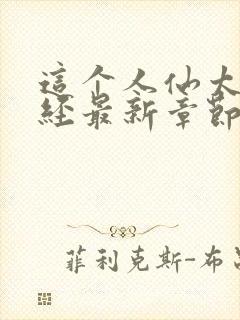 這个人仙太
經最新章節
菲利克斯-布